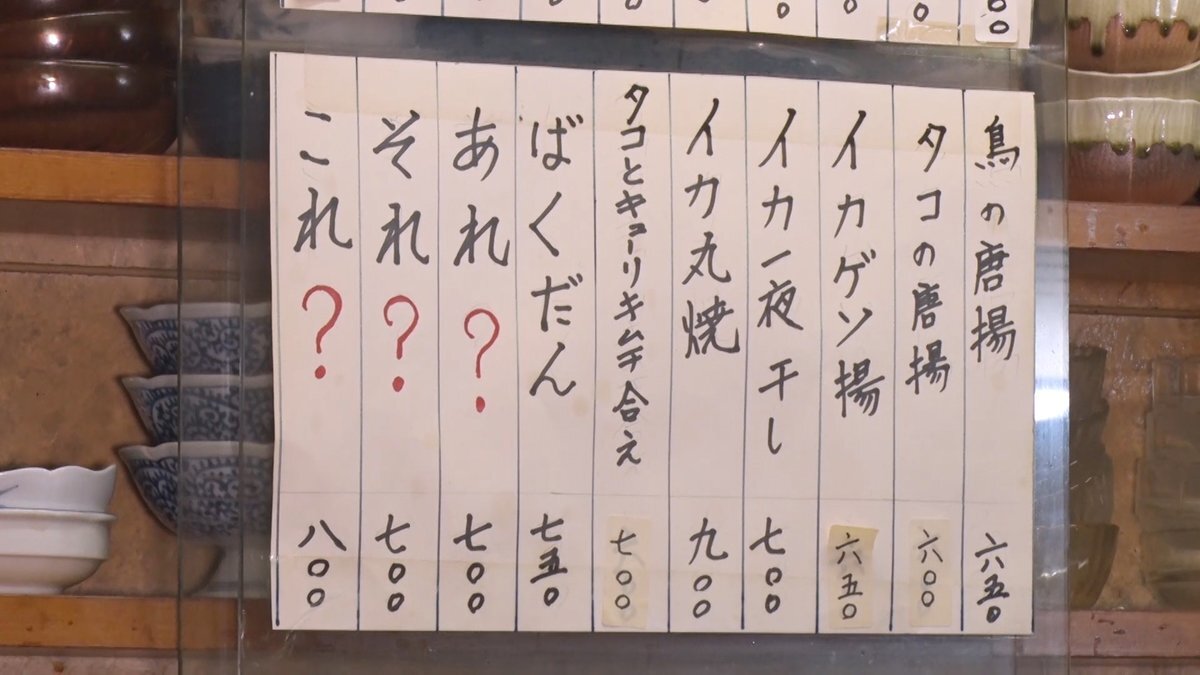 鳥の唐揚 六五〇
タコの唐揚 六〇〇
イカゲソ揚 六五〇
イカ一夜干し 七〇〇
イカ丸焼 九〇〇
タコとキューリキムチ合え 七〇〇
ばくだん 七五〇
あれ? 七〇〇
それ? 七〇〇
これ? 八〇〇